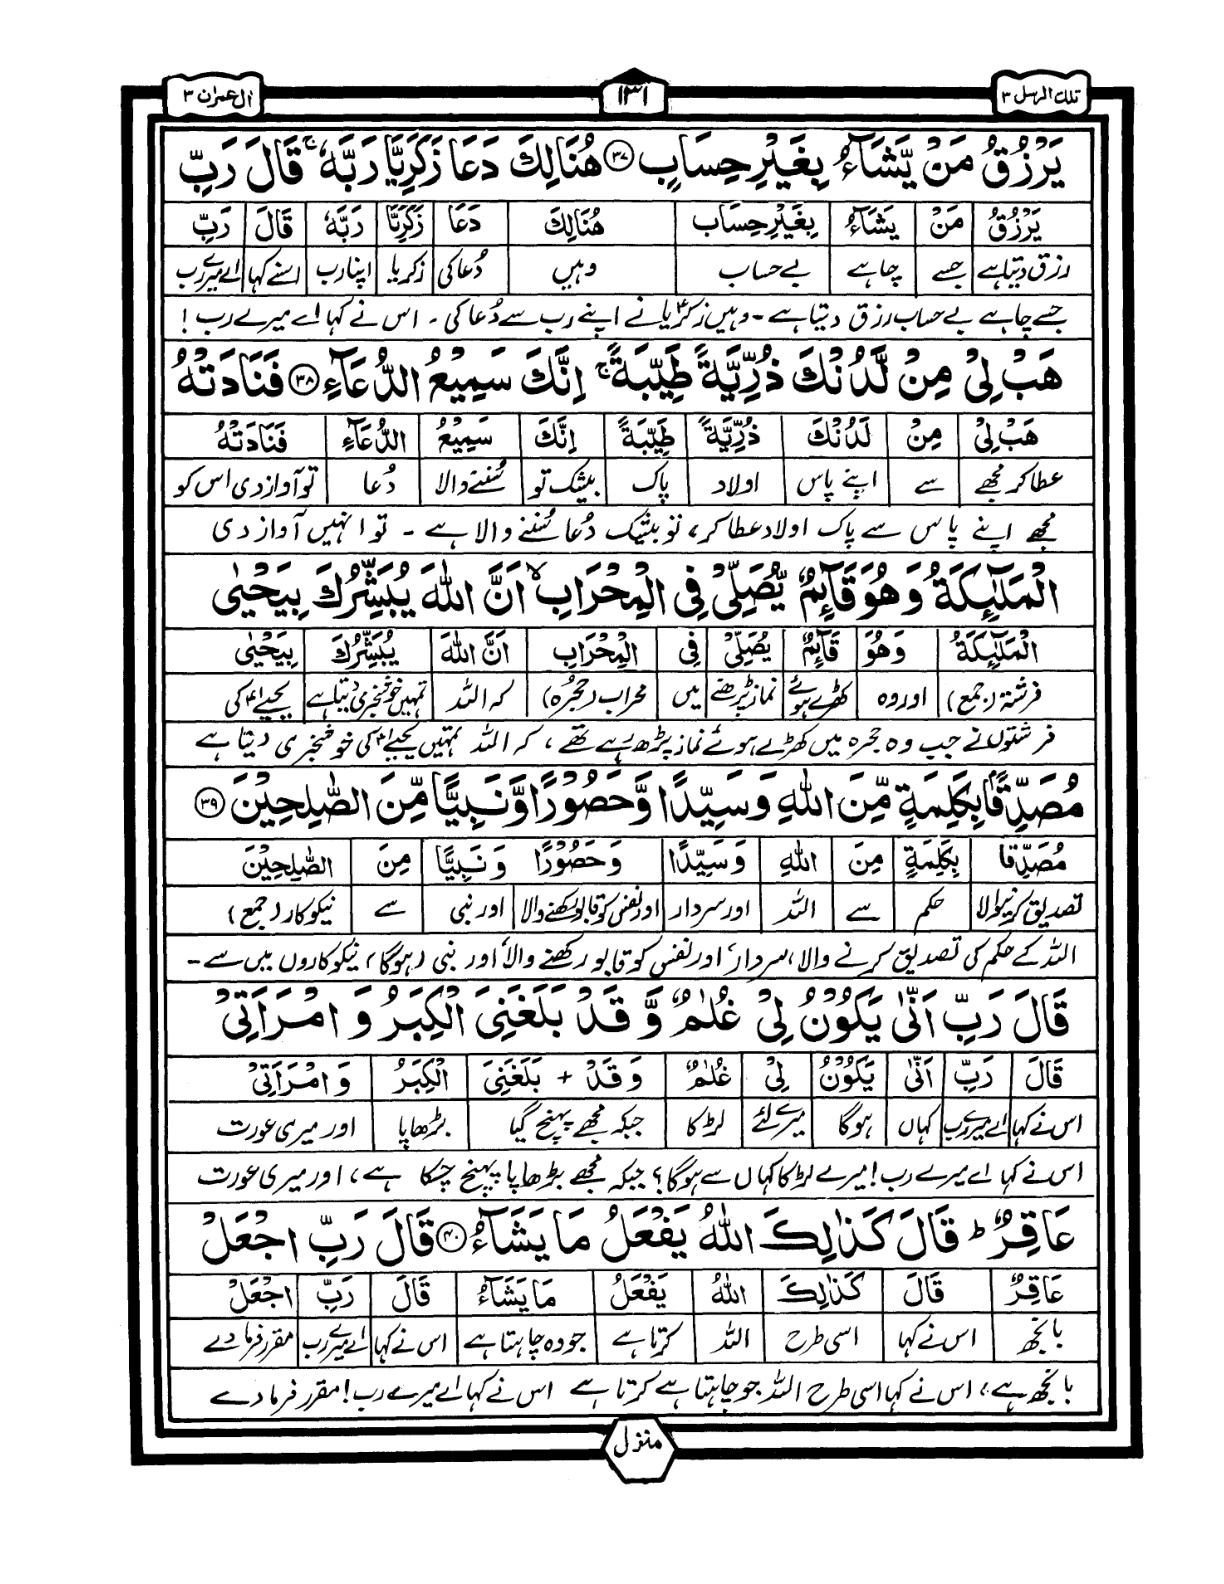 تلك الرسل ۳
۱۳۱
ال عمران ۳
يَرْزُقُ مَنْ يَّشَآءُ بِغَيْرِ حِسَابٍ ﴿۳۷﴾ هُنَالِكَ دَعَا زَكَرِيَّا رَبَّهٗ ۚ قَالَ رَبِّ
يَرْزُقُ مَنْ يَشَآءُ بِغَيْرِ حِسَابٍ هُنَالِكَ دَعَا زَكَرِيَّا رَبَّهٗ قَالَ رَبِّ
رزق دیتا ہے جسے چاہے بے حساب وہیں دُعا کی زکریا اپنا رب اسنے کہا اے میرے رب
جسے چاہے بے حساب رزق دیتا ہے۔ وہیں زکریا نے اپنے رب سے دُعا کی۔ اس نے کہا اے میرے رب!
هَبْ لِىْ مِنْ لَّدُنْكَ ذُرِّيَّةً طَيِّبَةً ۚ اِنَّكَ سَمِيْعُ الدُّعَآءِ ﴿۳۸﴾ فَنَادَتْهُ
هَبْ لِىْ مِنْ لَدُنْكَ ذُرِّيَّةً طَيِّبَةً اِنَّكَ سَمِيْعُ الدُّعَآءِ فَنَادَتْهُ
عطا کر مجھے سے اپنے پاس اولاد پاک بیشک تو سُننے والا دُعا تو آواز دی اس کو
مجھے اپنے پاس سے پاک اولاد عطا کر، تو بیشک دُعا سُننے والا ہے۔ تو انہیں آواز دی
الْمَلٰٓئِكَةُ وَهُوَ قَآئِمٌ يُّصَلِّىْ فِى الْمِحْرَابِ ۙ اَنَّ اللّٰهَ يُبَشِّرُكَ بِيَحْيٰى
الْمَلٰٓئِكَةُ وَهُوَ قَآئِمٌ يُصَلِّىْ فِى الْمِحْرَابِ اَنَّ اللّٰهَ يُبَشِّرُكَ بِيَحْيٰى
فرشتہ (جمع) اور وہ کھڑے ہوئے نماز پڑھنے میں محراب (حجرہ) کہ اللہ تمہیں خوشخبری دیتا ہے یحییٰ کی
فرشتوں نے جب وہ حجرہ میں کھڑے ہوئے نماز پڑھ رہے تھے، کہ اللہ تمہیں یحییٰ کی خوشخبری دیتا ہے
مُصَدِّقًاۢ بِكَلِمَةٍ مِّنَ اللّٰهِ وَسَيِّدًا وَّحَصُوْرًا وَّنَبِيًّا مِّنَ الصّٰلِحِيْنَ ﴿۳۹﴾
مُصَدِّقًا بِكَلِمَةٍ مِنَ اللّٰهِ وَسَيِّدًا وَحَصُوْرًا وَنَبِيًّا مِنَ الصّٰلِحِيْنَ
تصدیق کرنیوالا حکم سے اللہ اور سردار اور نفس کو قابو رکھنے والا اور نبی سے نیکوکار (جمع)
اللہ کے حکم کی تصدیق کرنے والا، سردار، اور نفس کو قابو رکھنے والا، اور نبی (ہوگا) نیکوکاروں میں سے۔
قَالَ رَبِّ اَنّٰى يَكُوْنُ لِىْ غُلٰمٌ وَّقَدْ بَلَغَنِىَ الْكِبَرُ وَامْرَاَتِىْ
قَالَ رَبِّ اَنّٰى يَكُوْنُ لِىْ غُلٰمٌ وَقَدْ + بَلَغَنِىَ الْكِبَرُ وَامْرَاَتِىْ
اس نے کہا اے میرے رب کہاں ہوگا میرے لئے لڑکا جبکہ مجھے پہنچ گیا بڑھاپا اور میری عورت
اس نے کہا اے میرے رب! میرے لڑکا کہاں سے ہوگا؟ جبکہ مجھے بڑھاپا پہنچ چکا ہے، اور میری عورت
عَاقِرٌ ؕ قَالَ كَذٰلِكَ اللّٰهُ يَفْعَلُ مَا يَشَآءُ ﴿۴۰﴾ قَالَ رَبِّ اجْعَلْ
عَاقِرٌ قَالَ كَذٰلِكَ اللّٰهُ يَفْعَلُ مَا يَشَآءُ قَالَ رَبِّ اجْعَلْ
بانجھ اس نے کہا اسی طرح اللہ کرتا ہے جو وہ چاہتا ہے اس نے کہا اے میرے رب مقرر فرمادے
بانجھ ہے، اس نے کہا اسی طرح اللہ جو چاہتا ہے کرتا ہے اس نے کہا اے میرے رب! مقرر فرمادے
منزل